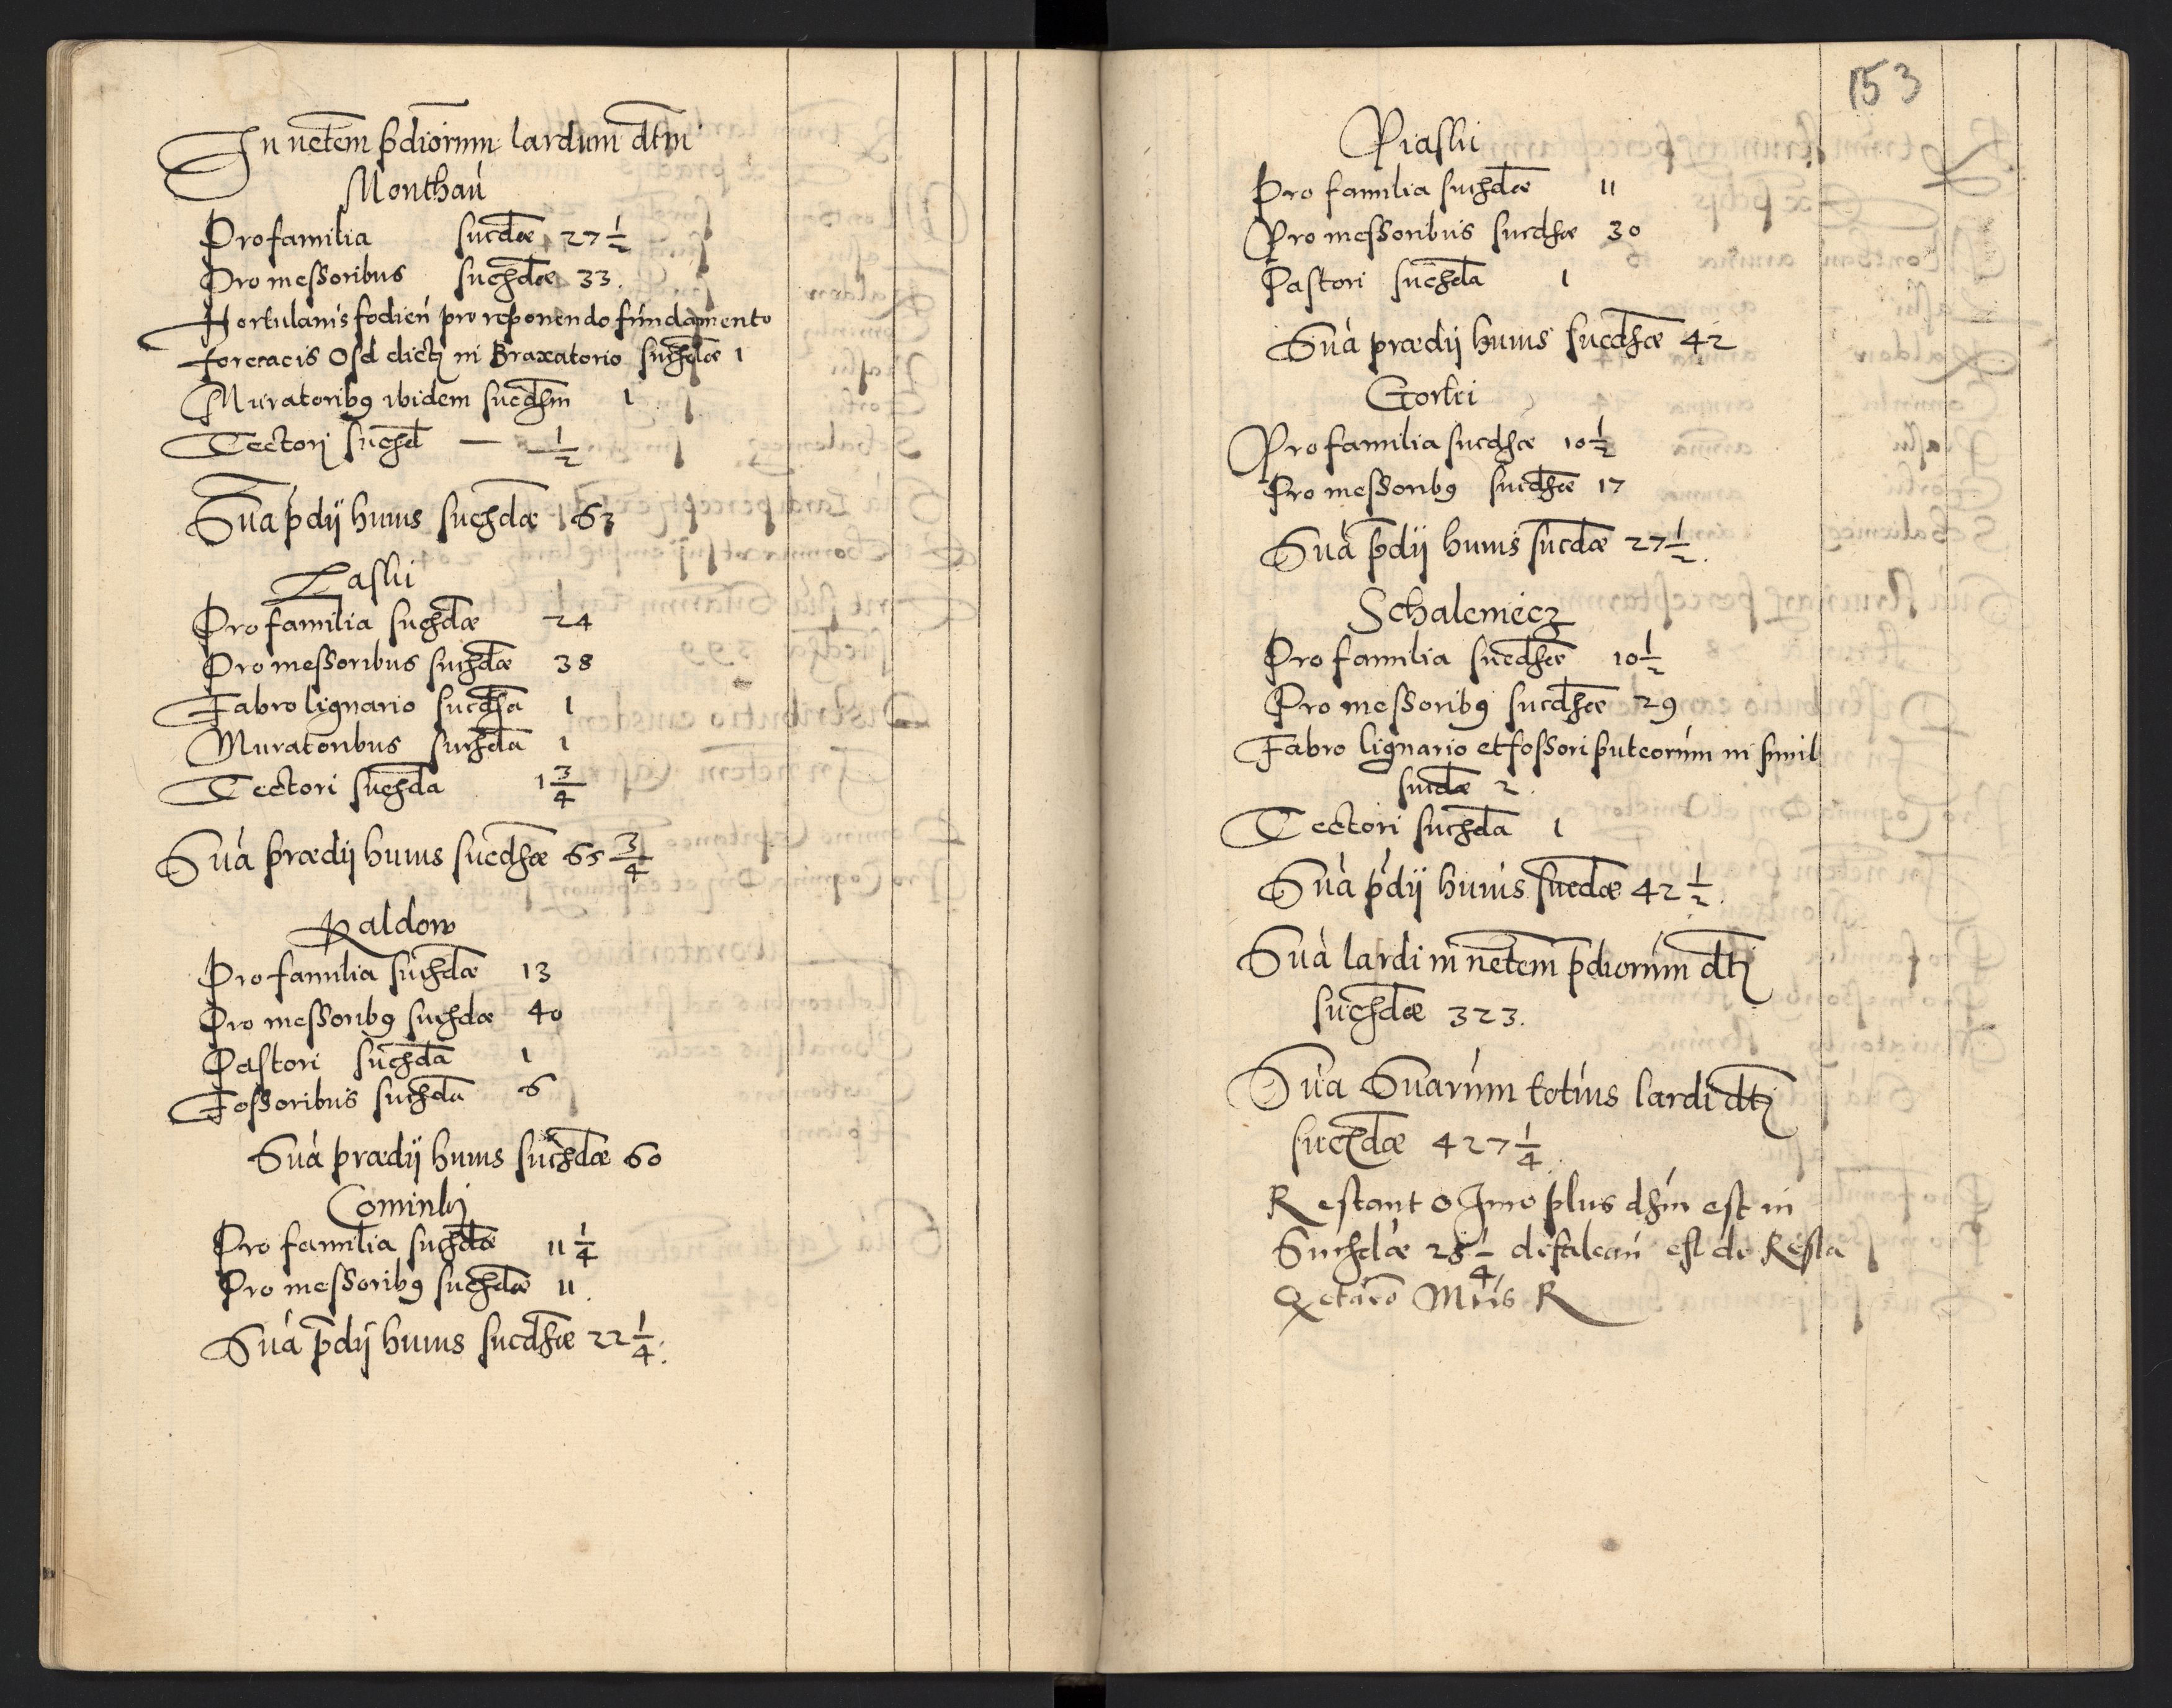 In uctem pdiorum lardum dtm
Monthaú
Pro familia sucdæ 27 1/2
Pro messoribus suchdæ 33.
Hortulanis fodień pro reponendo fundamento
forecacis Osd dictj in Braxatorio suchdæ 1
Muratoribꝯ ibidem sucdhm 1
Tectorj suchd — 1/2
Sua pdij huius suchdæ 63
Lasski
Pro familia suchdæ 24
Pro messoribus suchdæ 38
Fabro lignario sucdha 1
Muratoribus suchda 1
Tectori suchda 1 3/4
Sua prædij huius sucdhæ 65 3/4
Kaldow
Pro familia suchdæ 13
Pro messoribꝯ suchdæ 40
Pastori suchda 1
Fossoribus suchda 6
Sua prædij huius suchdæ 60
Cominkj
Pro familia suchdæ 11 1/4
Pro messoribꝯ suchdæ 11.
Sua pdij huius sucdhæ 22 1/4.
153
Piaski
Pro familia suchdæ 11
Pro messoribus sucdhæ 30
Pastori suchda 1
Sua prædij huius sucdhæ 42
Gorki
Pro familia sucdhæ 10 1/2
Pro messoribꝯ sucdhæ 17
Sua pdij huius sucdæ 27 1/2.
Schalemiecz
Pro familia sucdhæ 10 1/2
Pro messoribꝯ sucdhæ 29
Fabro lignario et fossori puteorum in simil
sucdæ 2.
Tectori suchda 1
Sua pdij huius sucdæ 42 1/2.
Sua lardi in uctem pdiorum dtj
suchdæ 323.
Sua Suarum totius lardi dtj
suchdæ 427 1/4.
Restant 0 Imo plus dhm est in
Suchdæ 28 1/4 defalcań est de Resta
Mtis R